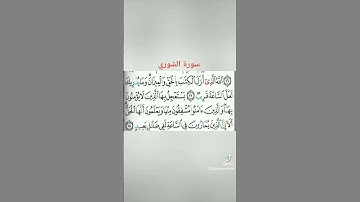 سورة الشوري
ٱللَّهُ ٱلَّذِىٓ أَنزَلَ ٱلْكِتَٰبَ بِٱلْحَقِّ وَٱلْمِيزَانَ وَمَا يُدْرِيكَ
لَعَلَّ ٱلسَّاعَةَ قَرِيبٌ ١٧ يَسْتَعْجِلُ بِهَا ٱلَّذِينَ لَا يُؤْمِنُونَ
بِهَا وَٱلَّذِينَ ءَامَنُوا۟ مُشْفِقُونَ مِنْهَا وَيَعْلَمُونَ أَنَّهَا ٱلْحَقُّ
أَلَآ إِنَّ ٱلَّذِينَ يُمَارُونَ فِى ٱلسَّاعَةِ لَفِى ضَلَٰلٍۭ بَعِيدٍ ١٨